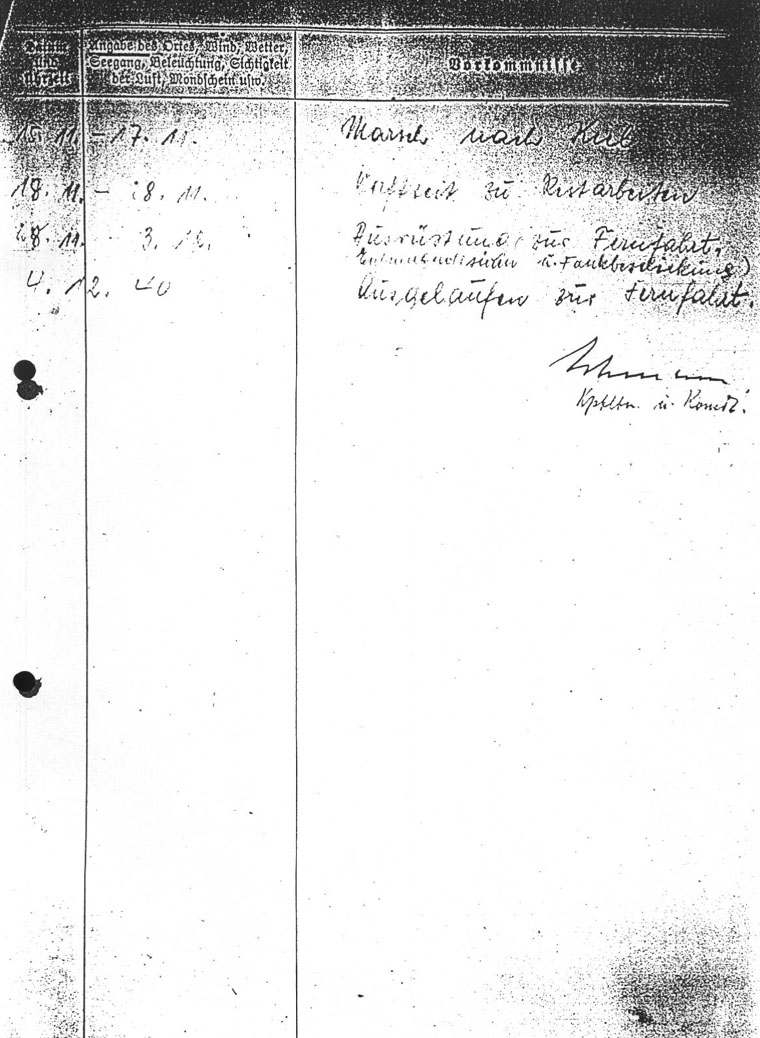 Datum und Uhrzeit
Angabe des Ortes, Wind, Wetter, Seegang, Beleuchtung, Sichtigkeit der Luft, Mondschein usw.
Vorkommnisse
15. 11. - 17. 11. Marsch nach Kiel
18. 11. - 28. 11. Werftzeit zu Restarbeiten
28. 11. 3. 12. Ausrüstung zur Fernfahrt.
u. Funkbeschickung)
4. 12. 40 Ausgelaufen zur Fernfahrt.
Kptltn. u. Komdt.